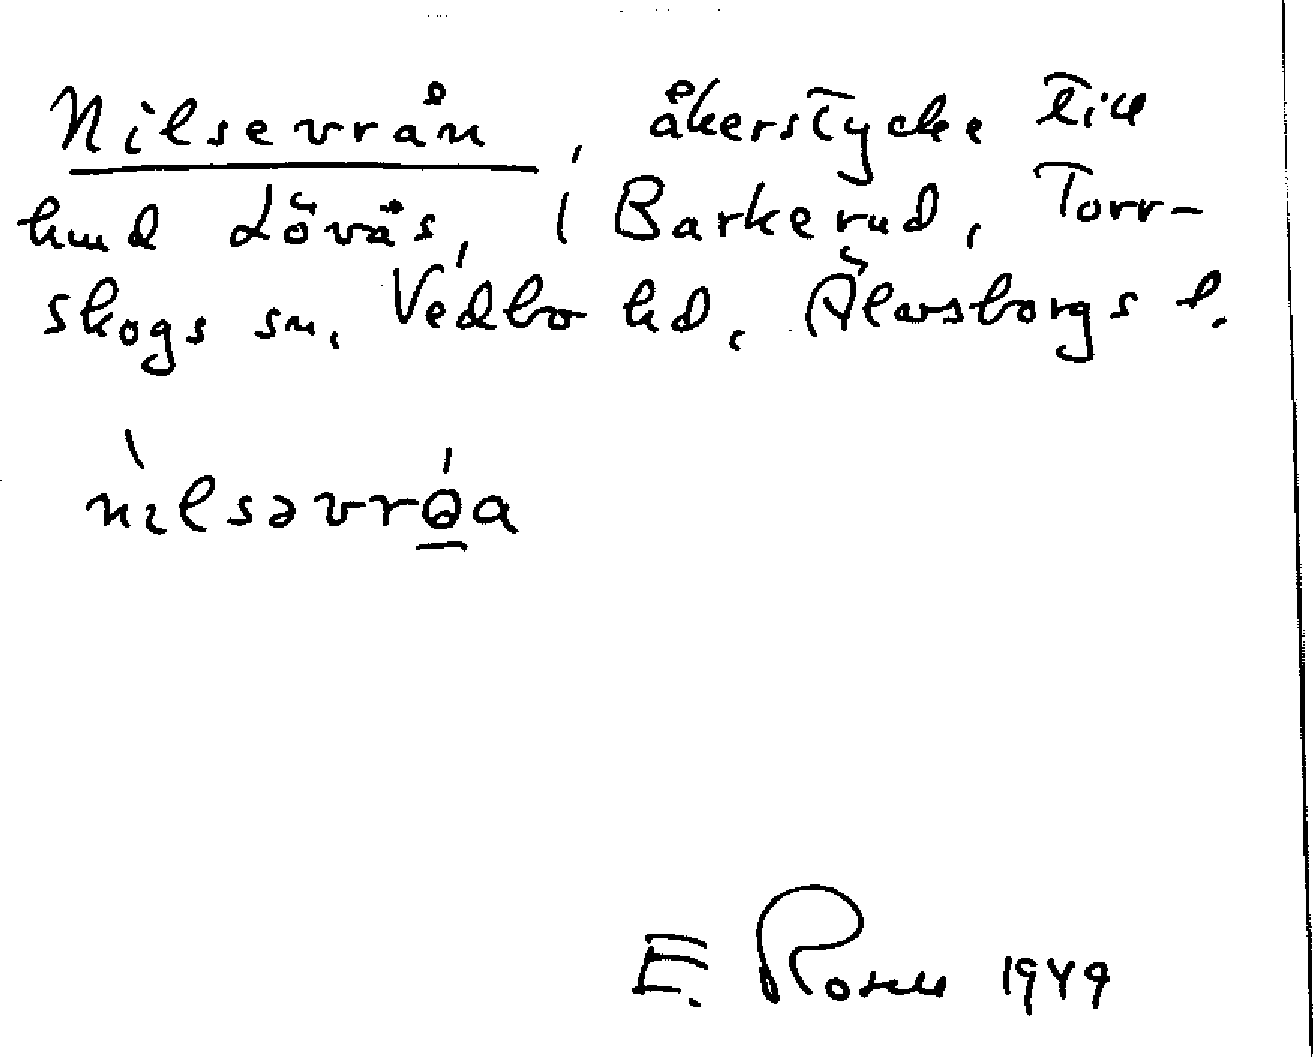 Nilsevrån, åkerstycke till
hmd Lövås, i Barkerud, Torr-
skogs sn, Vedbo hd, Älvsborgs l.
nìlsəvrɵ́a
E. Rosell 1949